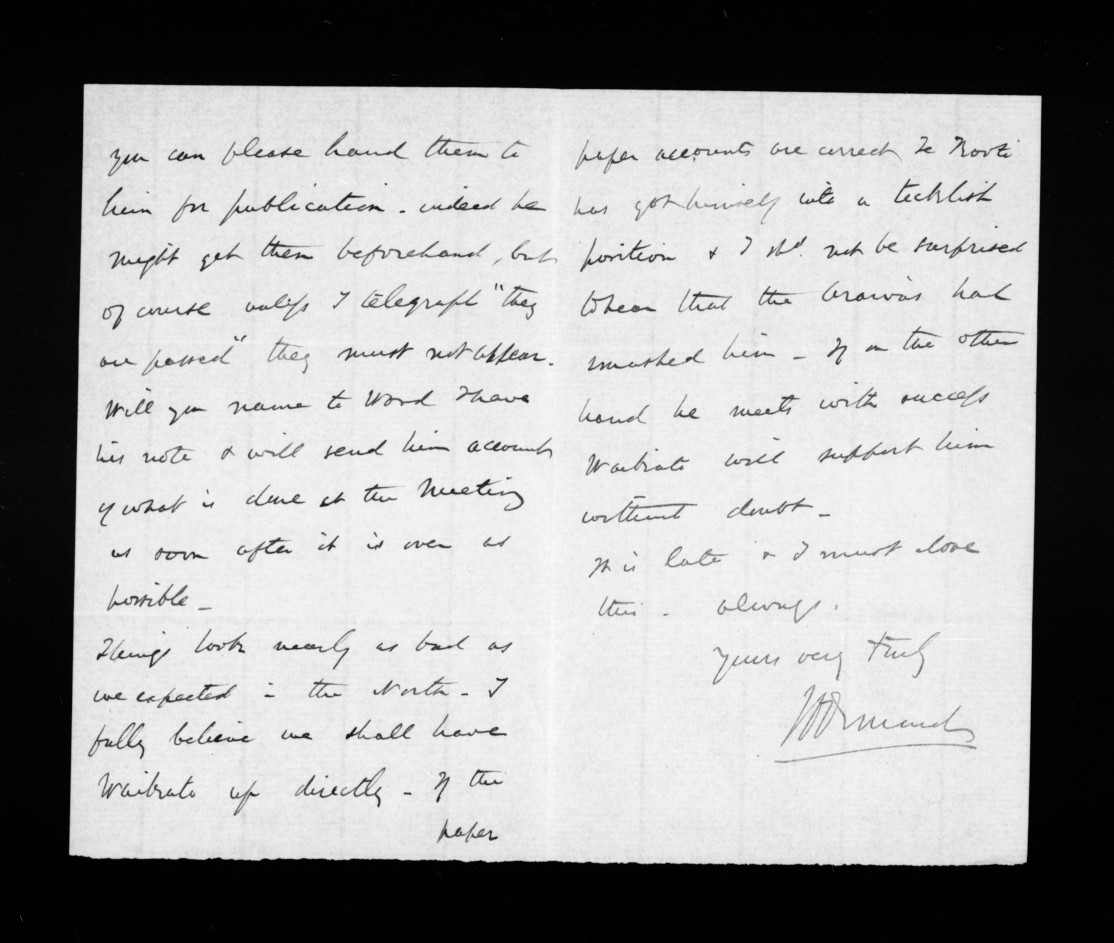 you can please hand them to
him for publication - indeed he
might get them beforehand, but
of course unless I telegraph "they
are passed" they must not appear.
Will you name to Word I have
his note & will send him accounts
of what is done at the Meeting
as soon after it is over as
possible -
Things look nearly as bad as
we expected in the North - I
fully believe we shall have
Waikato up directly - If the
paper
paper accounts are correct Te Kooti
has got himself into a ticklish
position & I shd. not be surprised
to hear that the Arawas had
smashed him - If on the other
hand he meets with success
Waikato will support him
without doubt -
It is late & I must close
this - always.
Yours very truly
JD Ormond